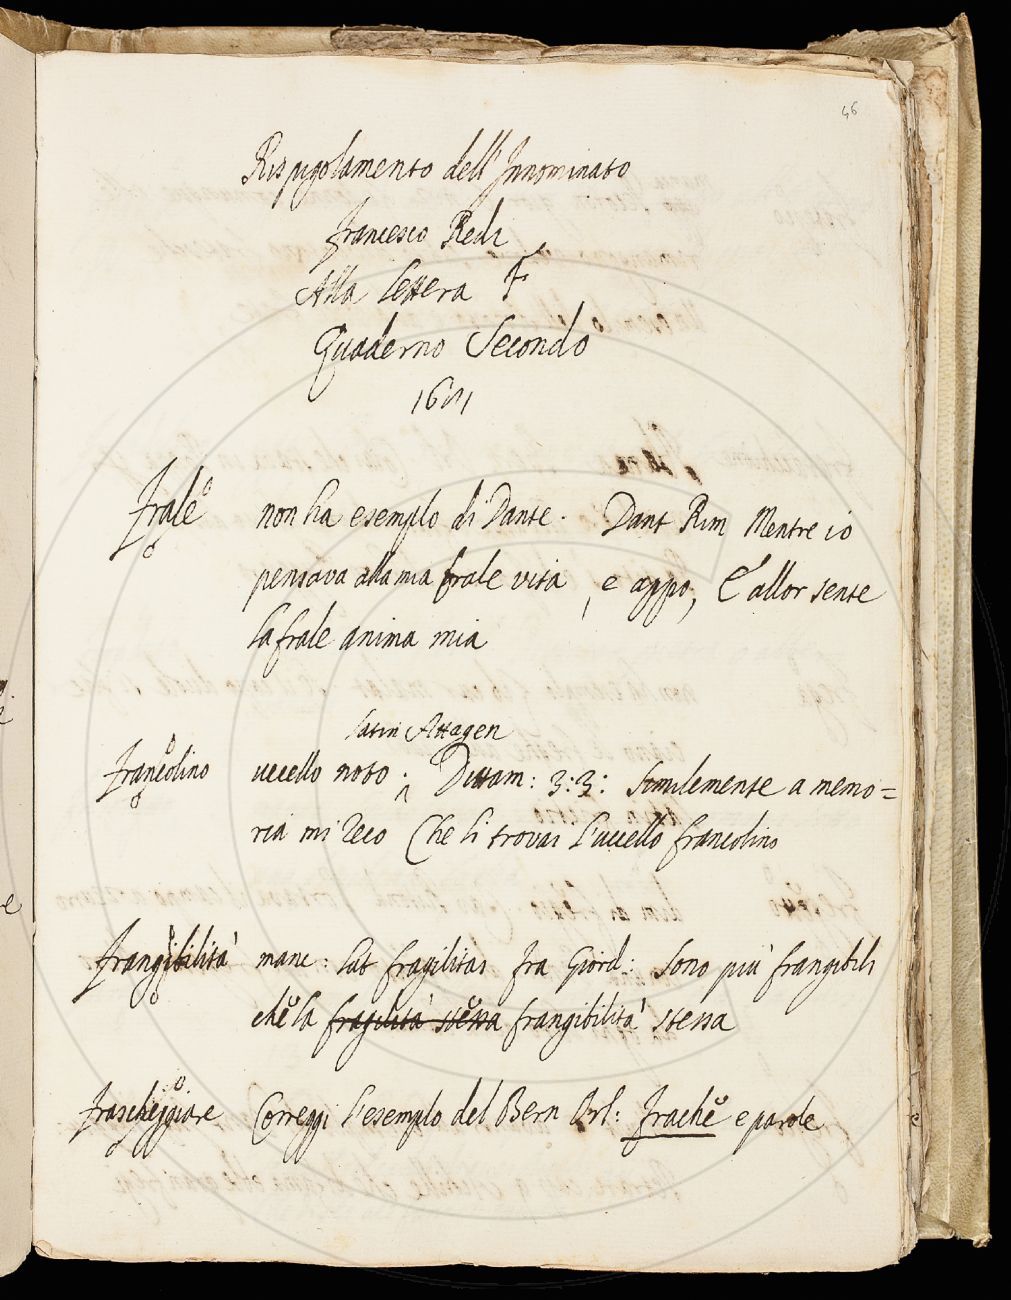 46
Rispigolamento dell'Innominato
Francesco Redi
Alla lettera F
Quaderno Secondo
Frale non ha esemplo di Dante. Dant Rim Mentre io
pensava alla mia frale vita, e appo, E allor sente
la frale anima mia
latin Attagen
Francolino uccello noto; Dittam: 3:3: Similemente a memo=
ria mi reco Che li trovai l'uccello francolino
Frangibilità manc: lat fragilitas Fra Giord: Sono più frangibili
che la fragilità stessa frangibilità stessa
Frascheggiare Correggi l'esemplo del Bern Orl: Frache e parole